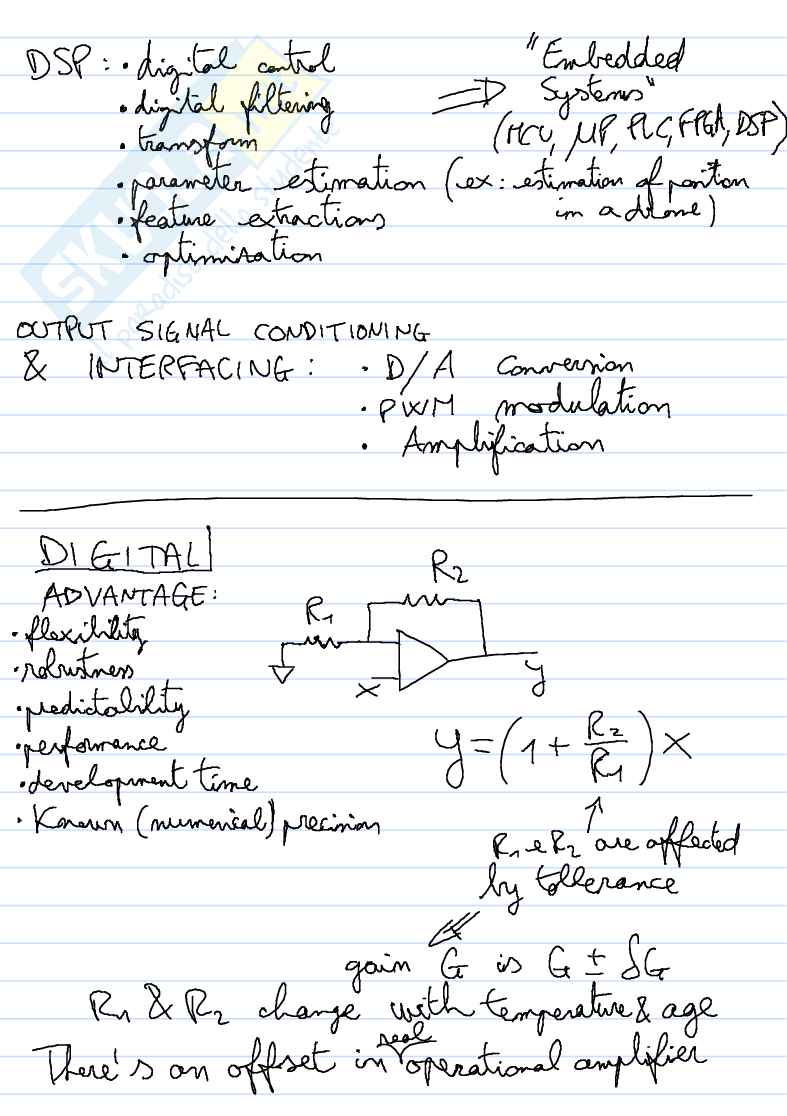 DSP: • digital control
• digital filtering
• transform
• parameter estimation (ex: estimation of position
in a drone)
• feature extractions
• optimisation
"Embedded
⇒ Systems"
(MCU, μP, PLC, FPGA, DSP)
OUTPUT SIGNAL CONDITIONING
& INTERFACING: • D/A Conversion
• PWM modulation
• Amplification
DIGITAL
ADVANTAGE:
• flexibility
• robustness
• predictability
• performance
• development time
• Known (numerical) precision
R1
R2
x
y
y = (1 + R2/R1) x
↑
R1 e R2 are affected
by tollerance
gain G is G ± δG
R1 & R2 change with temperature & age
There's an offset in real operational amplifier